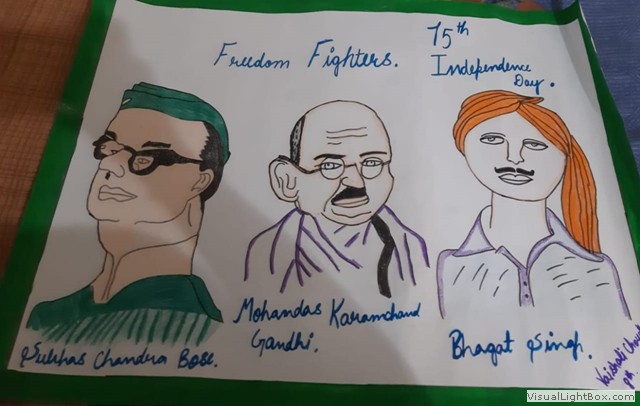 Freedom Fighters.
75th
Independence
Day.
Subhas Chandra Bose.
Mohandas Karamchand
Gandhi.
Bhagat Singh.
VisualLightBox.com